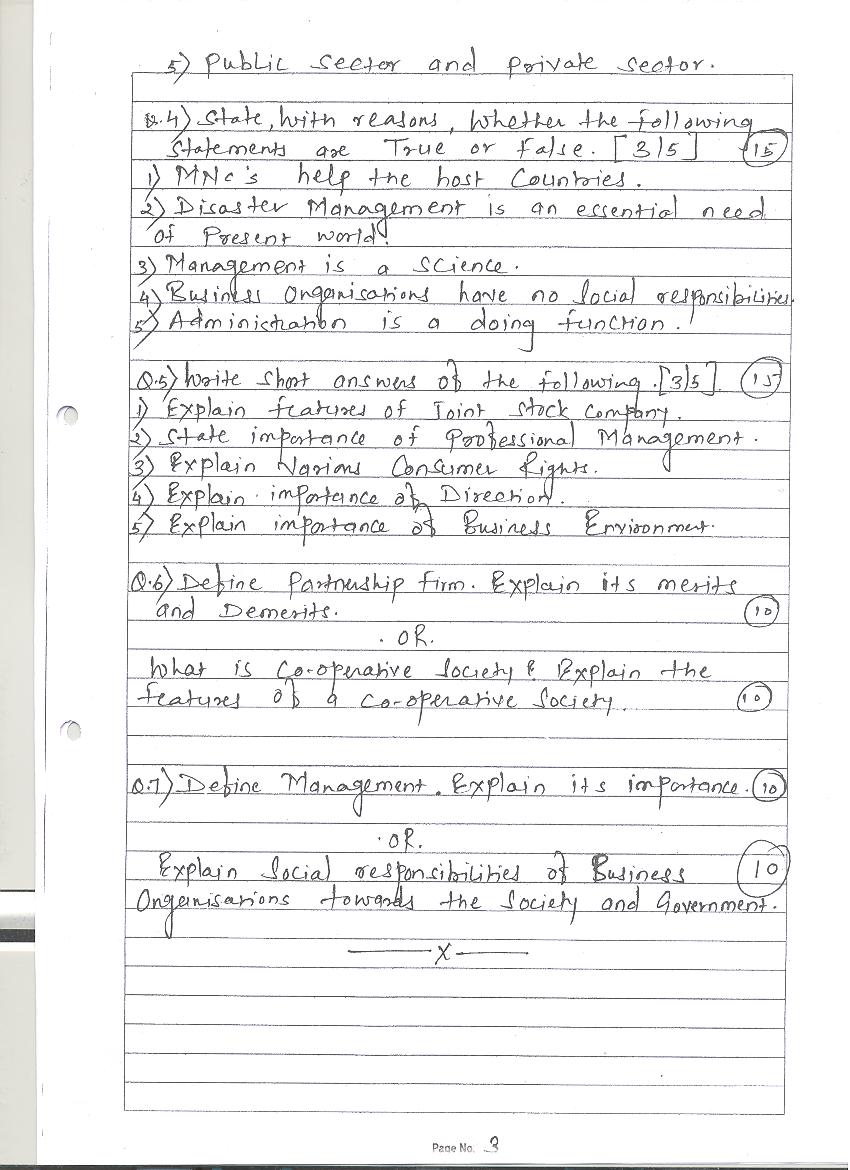 5) Public Sector and Private Sector.
Q.4) State, With reasons, Whether the following
Statements are True or False. [3/5] 15
1) MNC's help the host Countries.
2) Disaster Management is an essential need
of Present world.
3) Management is a Science.
4) Business Organisations have no Social responsibilities.
5) Administration is a doing function.
Q.5) Write Short answers of the following. [3/5] 15
1) Explain features of Joint Stock Company.
2) State importance of Professional Management.
3) Explain Various Consumer Rights.
4) Explain importance of Direction.
5) Explain importance of Business Environment.
Q.6) Define Partnership firm. Explain its merits
and Demerits. 10
. OR.
What is Co-operative Society & Explain the
features of a Co-operative Society. 10
Q.7) Define Management. Explain its importance. 10
. OR.
Explain Social responsibilities of Business 10
Organisations towards the Society and Government.
X
Page No. 3